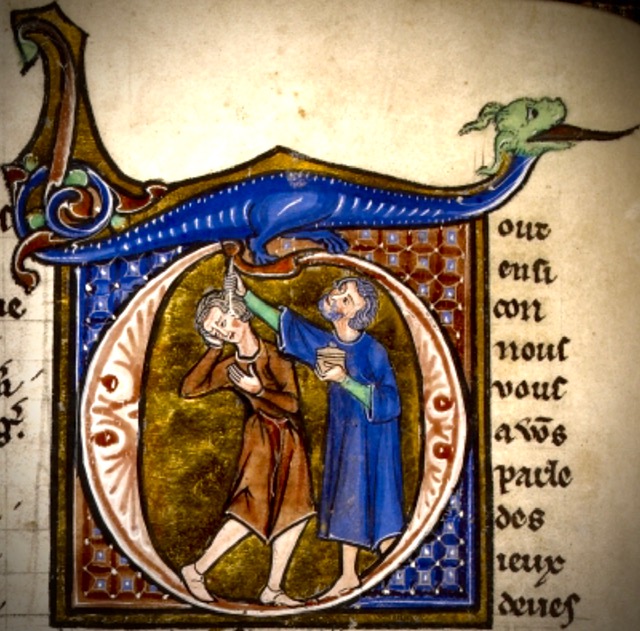 out
ensi
con
nous
vous
avōs
parle
des
ieux